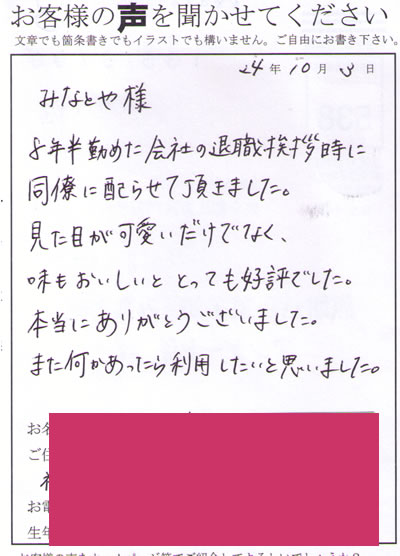 お客様の声を聞かせてください
文章でも箇条書きでもイラストでも構いません。ご自由にお書き下さい。
24年10月3日
みなとや様
8年半勤めた会社の退職挨拶時に
同僚に配らせて頂きました。
見た目が可愛いだけでなく、
味もおいしいと とっても好評でした。
本当にありがとうございました。
また何かあったら利用したいと思いました。
お名
ご住
お電
生年